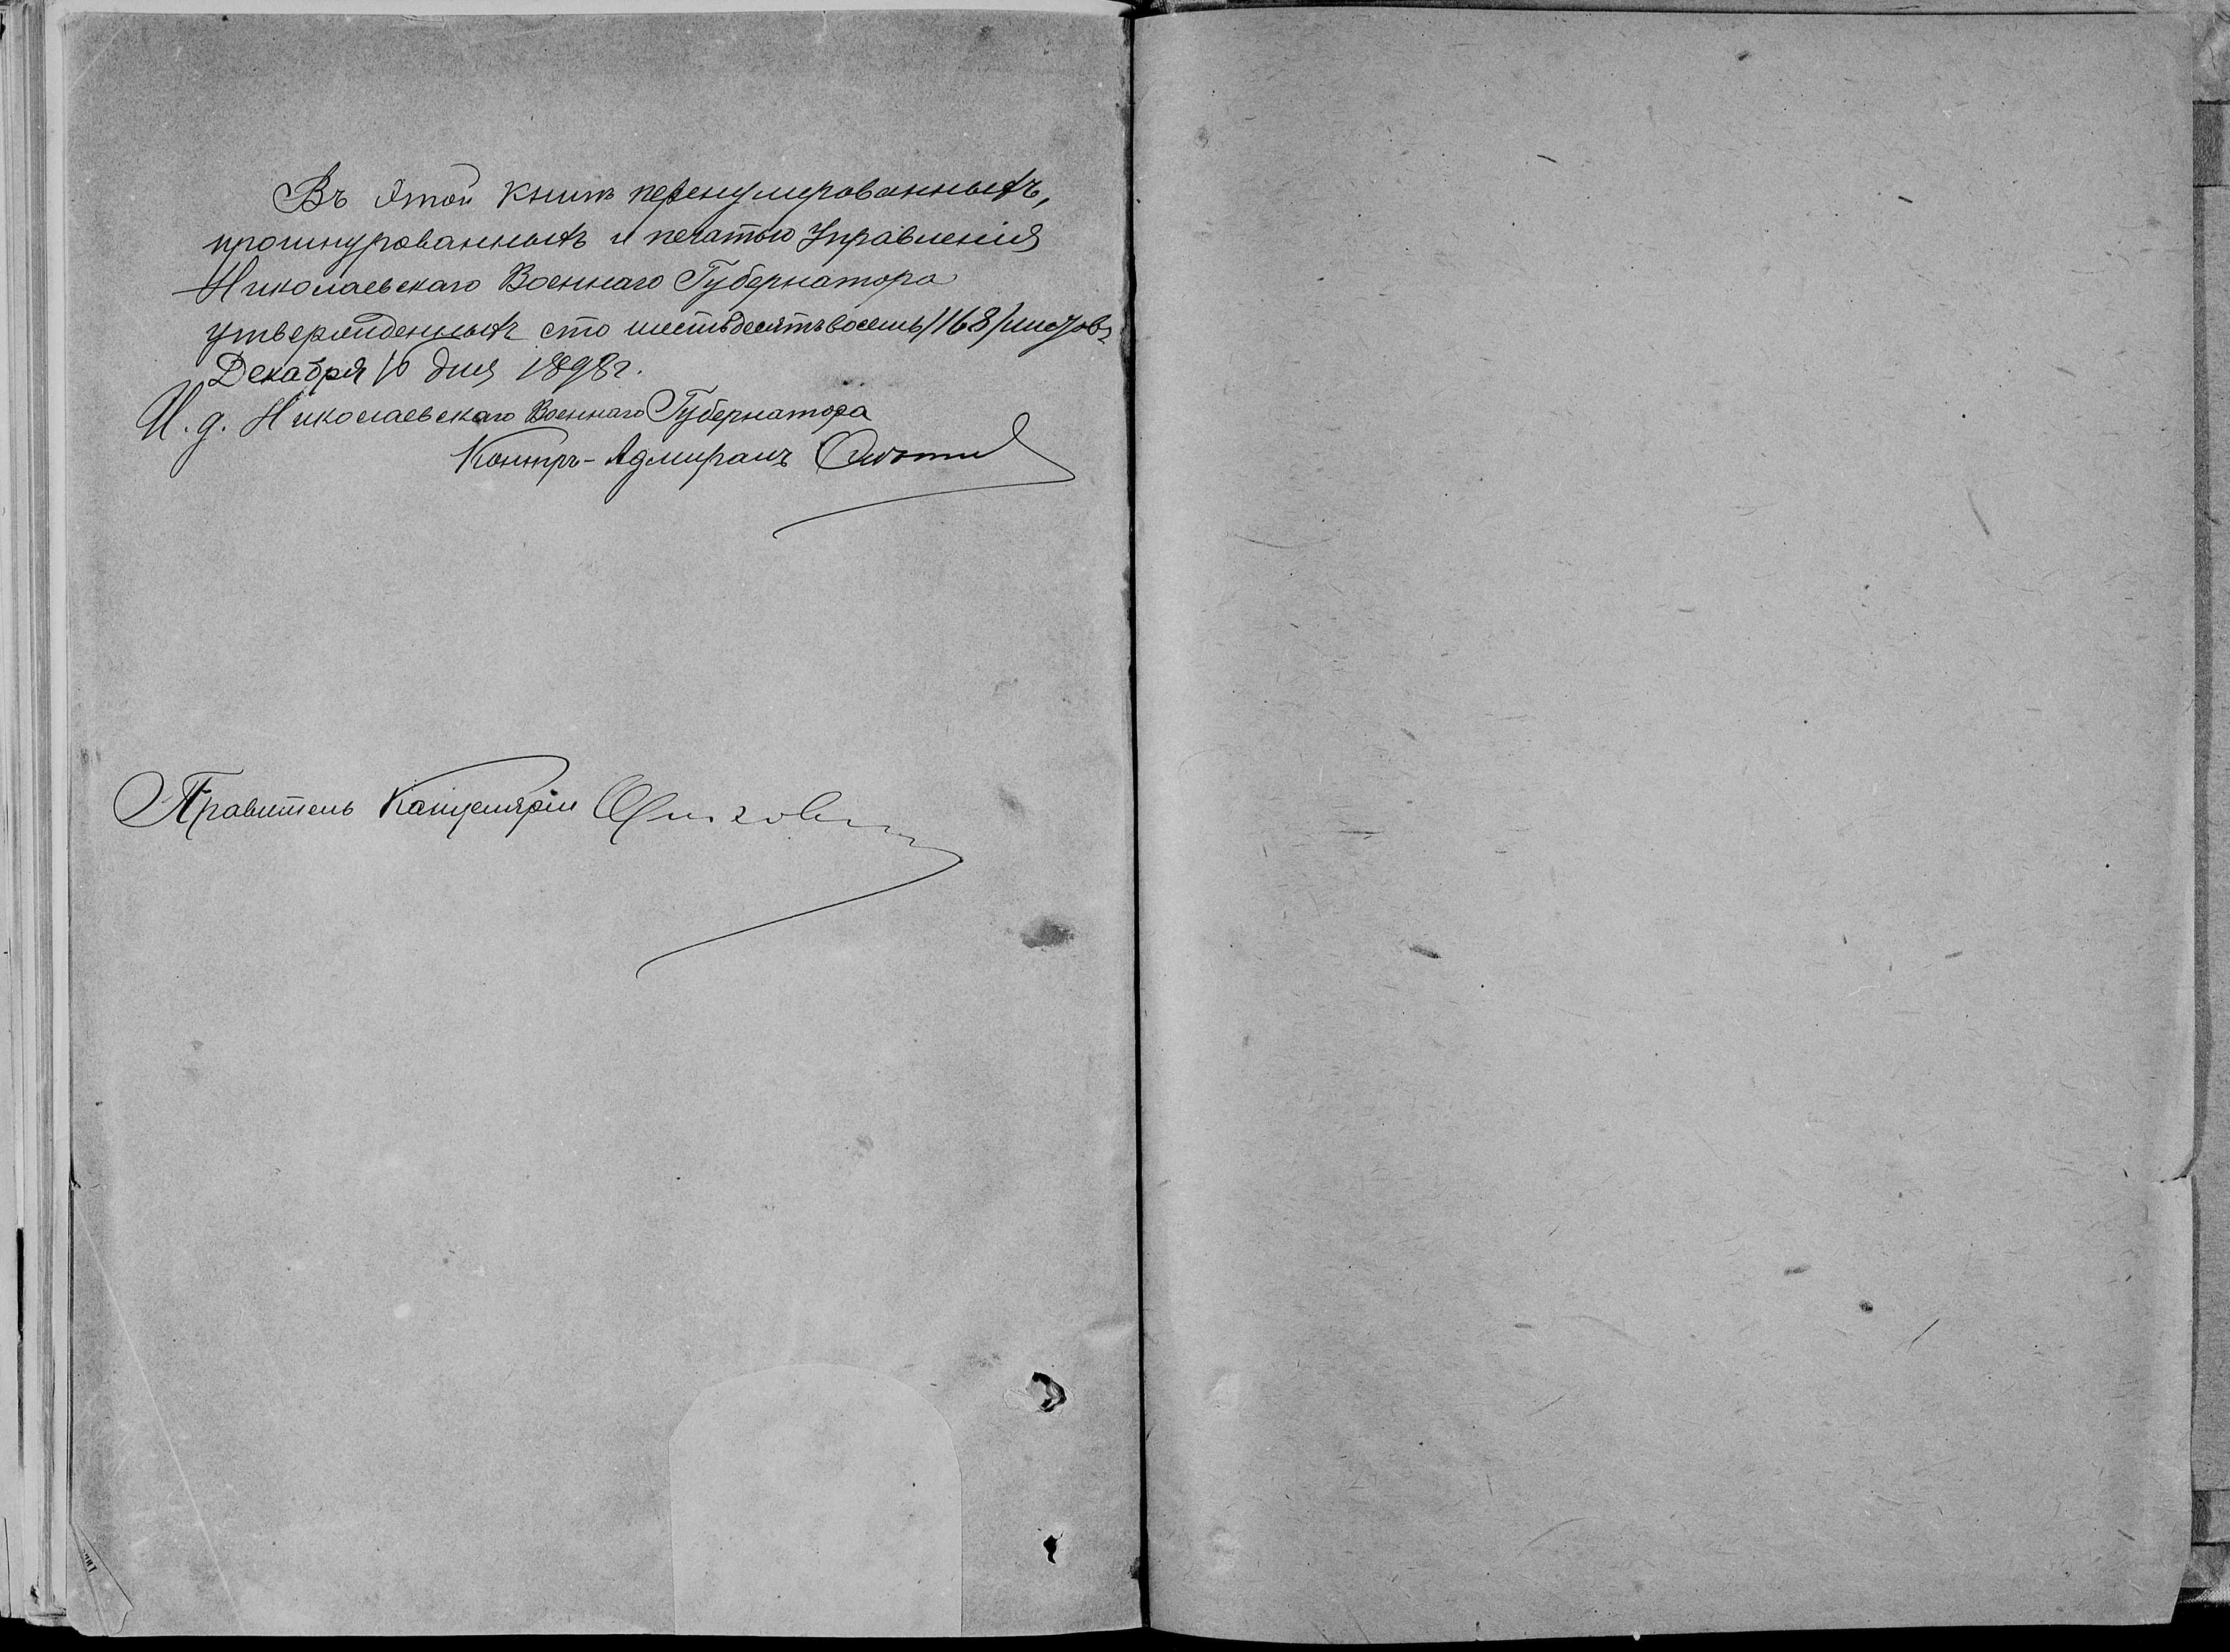 Въ этой книгѣ перенумерованныхъ,
прошнурованныхъ и печатью Управленія
Николаевскаго Военнаго Губернатора
утвержденныхъ сто шестьдесятъ восемь /168/ листовъ
Декабря 10 дня 1898 г.
И. д. Николаевскаго Военнаго Губернатора
Контръ-Адмиралъ
Правитель Канцеляріи